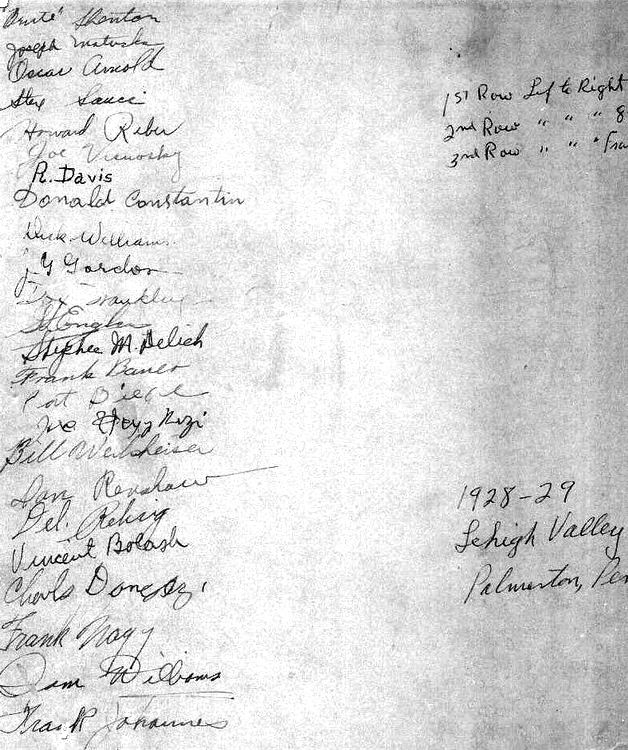 "Brute" Shenton
Joseph Matuska
Oscar Arnold
Steve Sauci
Howard Reber
Joe Visnosky
R. Davis
Donald Constantin
Dick Williams
J Y Gordon
Franklin
Ed Engler
Stephen M. Delich
Frank Bauer
Biege
Joe
Bill Weihsheiser
Dan Renshaw
Del. Rehrig
Vincent Bolash
Charls
Frank Nagy
Sam Williams
Frank Johannes
1ST Row Lef to Right
2nd Row " " " 8
3rd Row " " " Fra
1928-29
Lehigh Valley
Palmerton, Pen